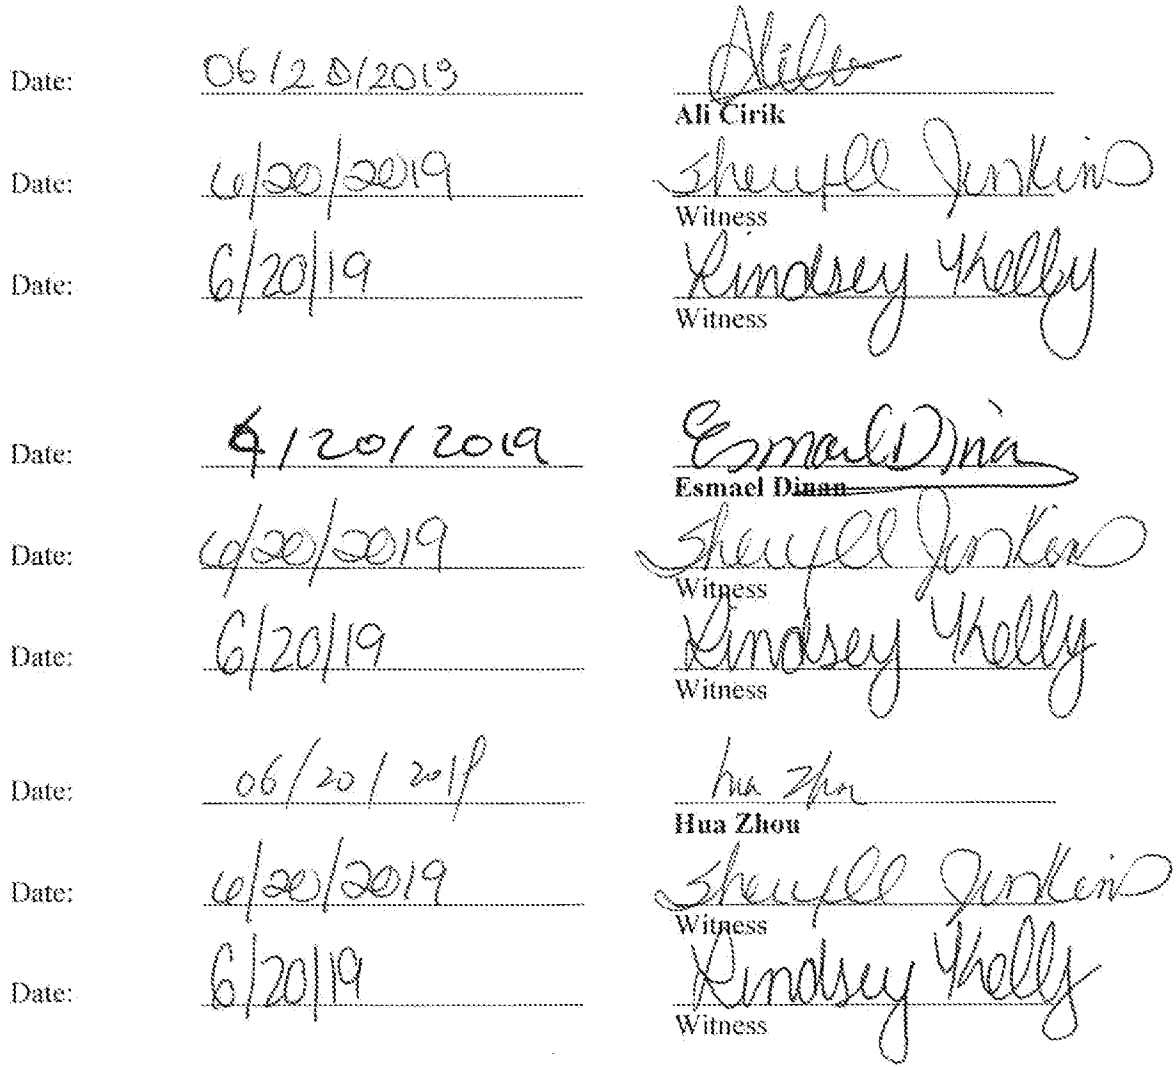 Date: 06/20/2019 Ali Cirik
Ali Cirik
Date: 6/20/2019 Sheryll Jenkins
Witness
Date: 6/20/19 Lindsey Kelly
Witness
Date: 6/20/2019 Esmael Dinan
Esmael Dinan
Date: 6/20/2019 Sheryll Jenkins
Witness
Date: 6/20/19 Lindsey Kelly
Witness
Date: 06/20/2019 hua zhou
Hua Zhou
Date: 6/20/2019 Sheryll Jenkins
Witness
Date: 6/20/19 Lindsey Kelly
Witness